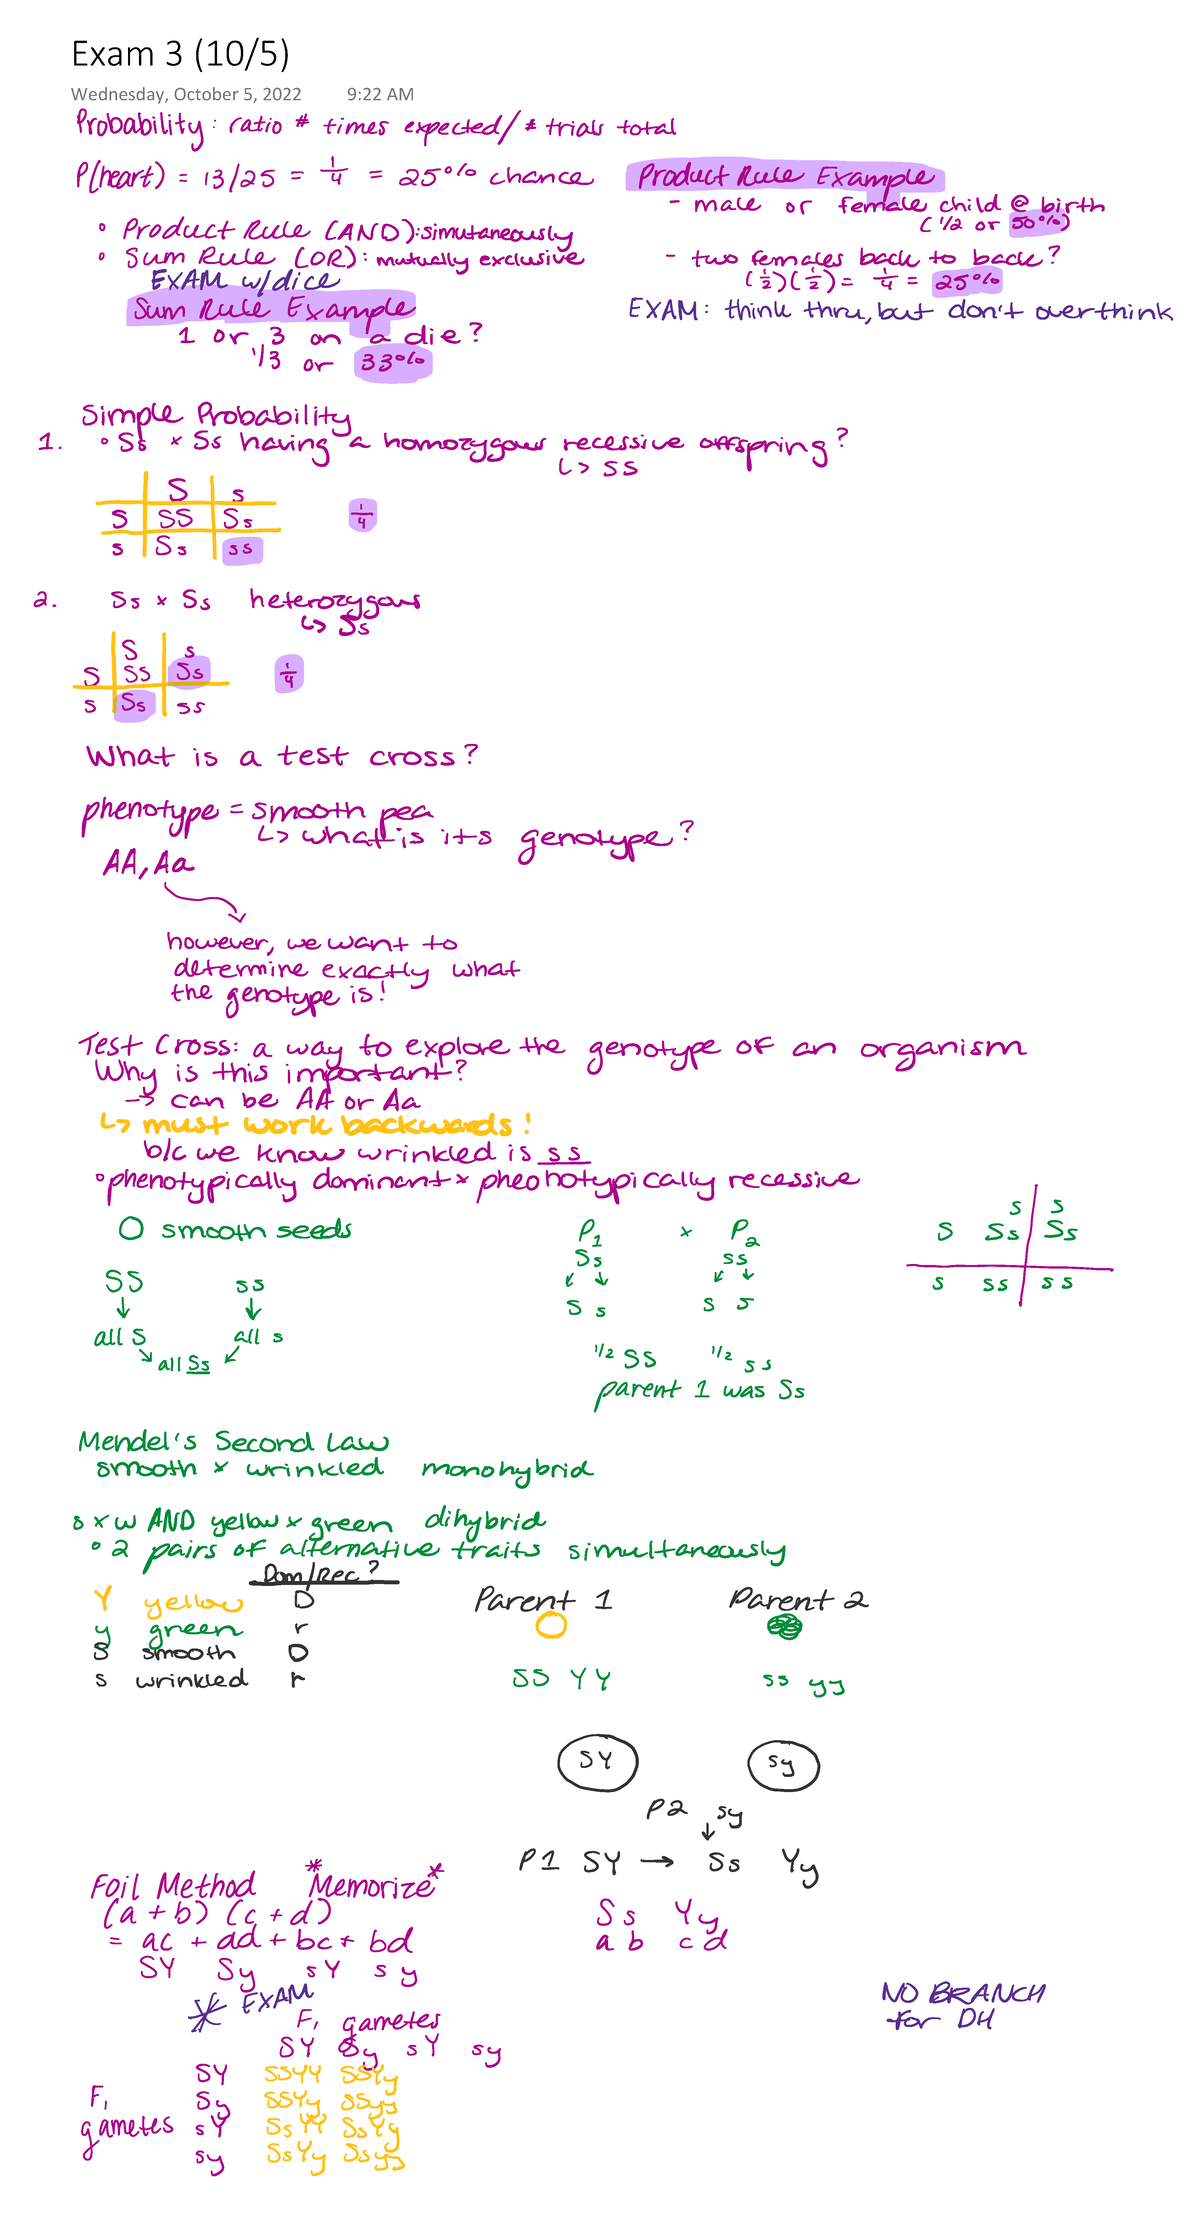 Exam 3 (10/5)
Wednesday, October 5, 2022 9:22 AM
Probability: ratio # times expected/# trials total
P(heart) = 13/25 = 1/4 = 25% chance
• Product Rule (AND): simutaneously
• Sum Rule (OR): mutually exclusive
EXAM w/dice
Sum Rule Example
1 or 3 on a die?
1/3 or 33%
Product Rule Example
- male or female child @ birth
(1/2 or 50%)
- two females back to back?
(1/2)(1/2) = 1/4 = 25%
EXAM: think thru, but don't overthink
Simple Probability
1. • Ss x Ss having a homozygous recessive offspring?
↳ ss
S s
S SS Ss 1/4
s Ss ss
2. Ss x Ss heterozygous
↳ Ss
S s
S SS Ss 1/4
s Ss ss
What is a test cross?
phenotype = smooth pea
↳ what is its genotype?
AA, Aa
however, we want to
determine exactly what
the genotype is!
Test Cross: a way to explore the genotype of an organism
Why is this important?
→ can be AA or Aa
↳ must work backwards!
b/c we know wrinkled is ss
• phenotypically dominant x pheonotypically recessive
O smooth seeds
SS ss
↓ ↓
all S all s
↘ all Ss ↙
P1 x P2
Ss ss
↙ ↘ ↙ ↘
S s s s
1/2 SS 1/2 ss
parent 1 was Ss
s s
S Ss Ss
s ss ss
Mendel's Second Law
smooth x wrinkled monohybrid
s x w AND yellow x green dihybrid
• 2 pairs of alternative traits simultaneously
Dom/Rec?
Y yellow D
y green r
S smooth D
s wrinkled r
Parent 1 Parent 2
SS YY ss yy
SY sy
P2 sy
↓
P1 SY → Ss Yy
Ss Yy
a b c d
Foil Method *Memorize*
(a + b) (c + d)
= ac + ad + bc + bd
SY Sy sY sy
* EXAM
NO BRANCH
for DH
F1 gametes
SY Sy sY sy
SY SSYY SSYy
F1 Sy SSYy SSyy
gametes sY SsYY SsYy
sy SsYy Ssyy